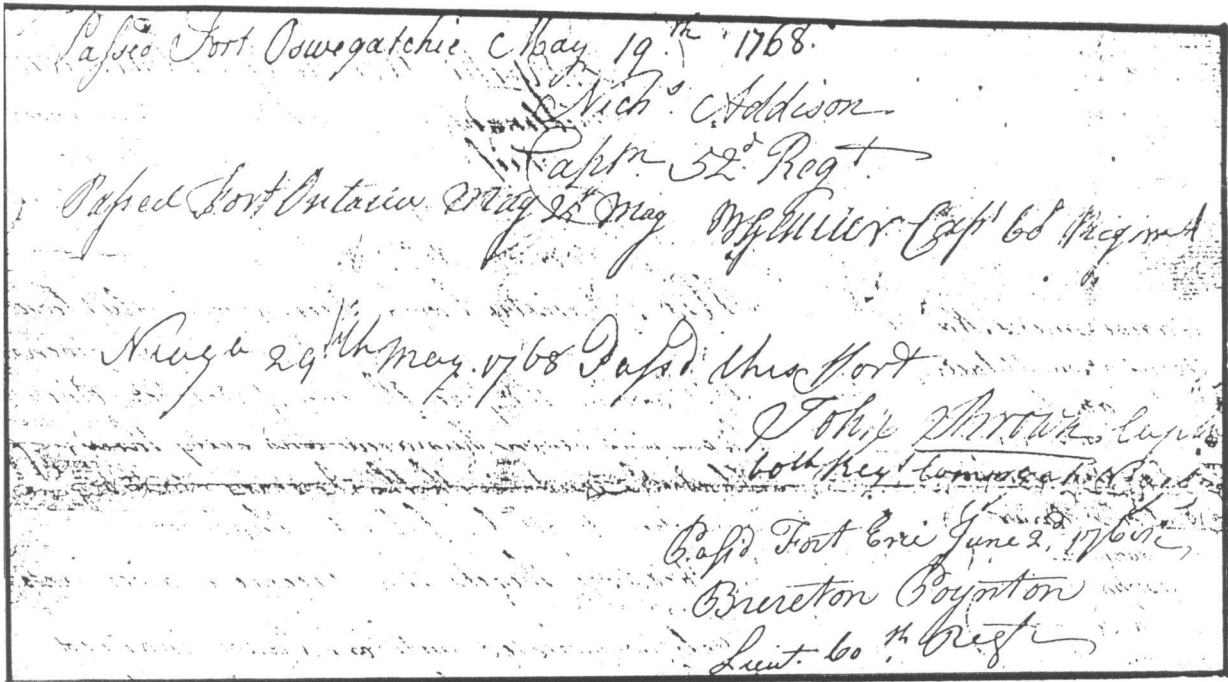 Passed Fort Oswegatchie May 19th 1768.
Nichs. Addison
Captn. 52d. Regt.
Passed Fort Ontario May May Capt 60 Regimt
29th May 1768 Pass'd this Port
John Brown Captn
60th Regt
Pass'd Fort Erie June 2d. 1768
Brereton Poynton
Lieut. 60th Regt